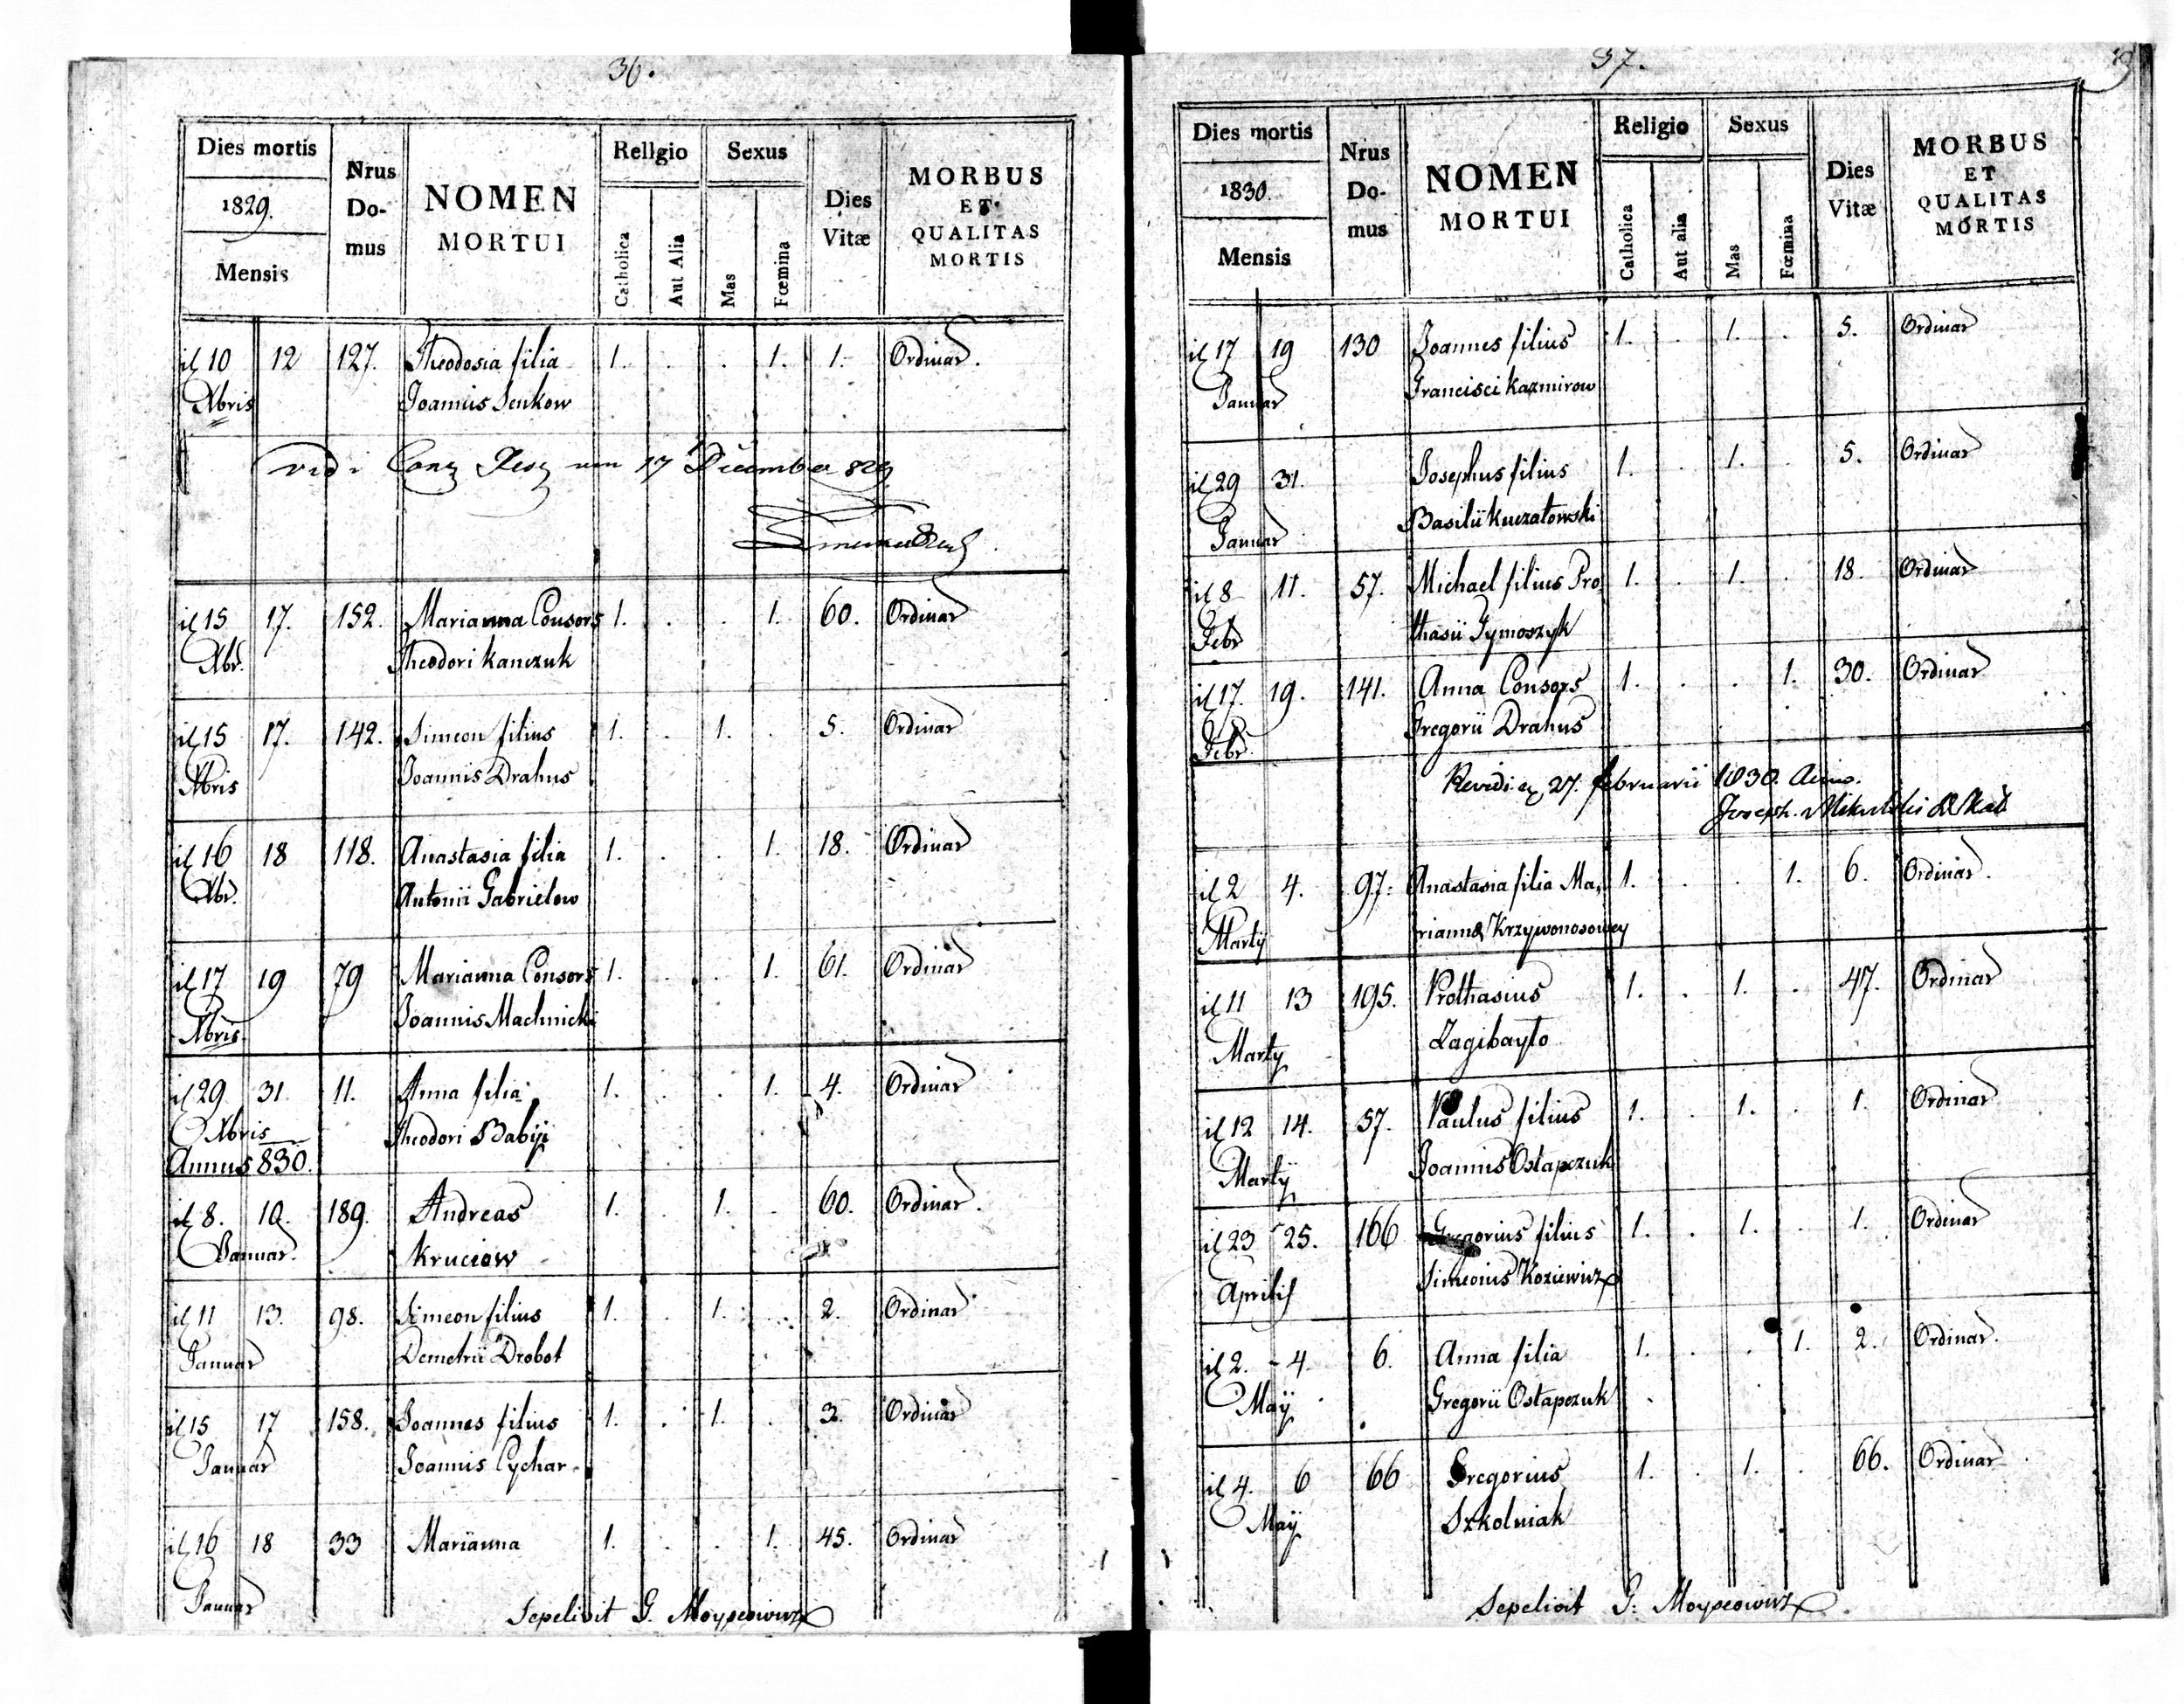 36.
Dies mortis
Nrus Do- mus
NOMEN MORTUI
Religio
Sexus
Dies Vitæ
MORBUS ET QUALITAS MORTIS
1829.
Mensis
Catholica
Aut Alia
Mas
Fœmina
il 10 12 127. Theodosia filia 1. . . 1. 1. Ordinar.
Xbris Joannis Senkow
vidi 17 December 829
il 15 17. 152. Marianna Consors 1. . . 1. 60. Ordinar
Xbr. Theodori Kanczuk
il 15 17. 142. Simeon filius 1. . 1. . 5. Ordinar
Xbris Joannis Drahus
il 16 18 118. Anastasia filia 1. . . 1. 18. Ordinar
Xbr. Antonii Gabrielow
il 17 19 79 Marianna Consors 1. . . 1. 61. Ordinar
Xbris Joannis Machnicki
il 29 31 11. Anna filia 1. . . 1. 4. Ordinar
Xbris Theodori Babij
Annus 830.
il 8. 10. 189. Andreas 1. . 1. . 60. Ordinar.
Januar. Kruciow
il 11 13. 98. Simeon filius 1. . 1. . 2. Ordinar
Januar Demetrii Drobot
il 15 17 158. Joannes filius 1. . 1. . 3. Ordinar
Januar Joannis Cychar
il 16 18 33 Marianna 1. . . 1. 45. Ordinar
Januar
Sepelivit G. Moyseowicz
37.
Dies mortis
Nrus Do- mus
NOMEN MORTUI
Religio
Sexus
Dies Vitæ
MORBUS ET QUALITAS MORTIS
1830.
Mensis
Catholica
Aut alia
Mas
Fœmina
il 17 19 130 Joannes filius 1. . 1. . 5. Ordinar
Januar Francisci Kazmirow
il 29 31. Josephus filius 1. . 1. . 5. Ordinar
Januar Basilii Kuczatowski
il 8 11. 57. Michael filius Pro, 1. . 1. . 18. Ordinar
Febr thasii Tymoszyk
il 17. 19. 141. Anna Consors 1. . . 1. 30. Ordinar
Febr. Gregorii Drahus
Revidi 27. februarii 1830. Anno.
Joseph.
il 2 4. 97. Anastasia filia Ma, 1. . . 1. 6. Ordinar.
Martij riannæ Krzywonosowey
il 11 13 195. Prothasius 1. . 1. . 47. Ordinar
Marty Zagibayło
il 12 14. 57. Paulus filius 1. . 1. . 1. Ordinar
Martÿ Joannis Ostapczuk
il 23 25. 166 Gregorius filius 1. . 1. . 1. Ordinar
Aprilis Simeonis Koziewicz
il 2. 4. 6. Anna filia 1. . . 1. 2. Ordinar.
Maÿ Gregorii Ostapczuk
il 4. 6 66 Gregorius 1. . 1. . 66. Ordinar
Maÿ Szkolniak
Sepelivit G: Moyseowicz